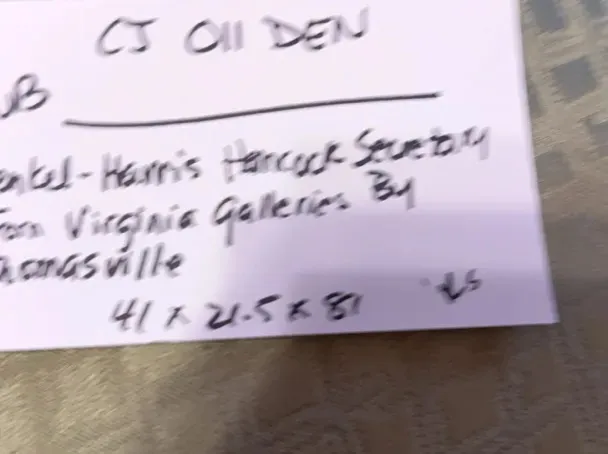 CJ 011 DEN
B
enkel-Harris Hancock Secretary
From Virginia Galleries By
homasville
41 x 21.5 x 81